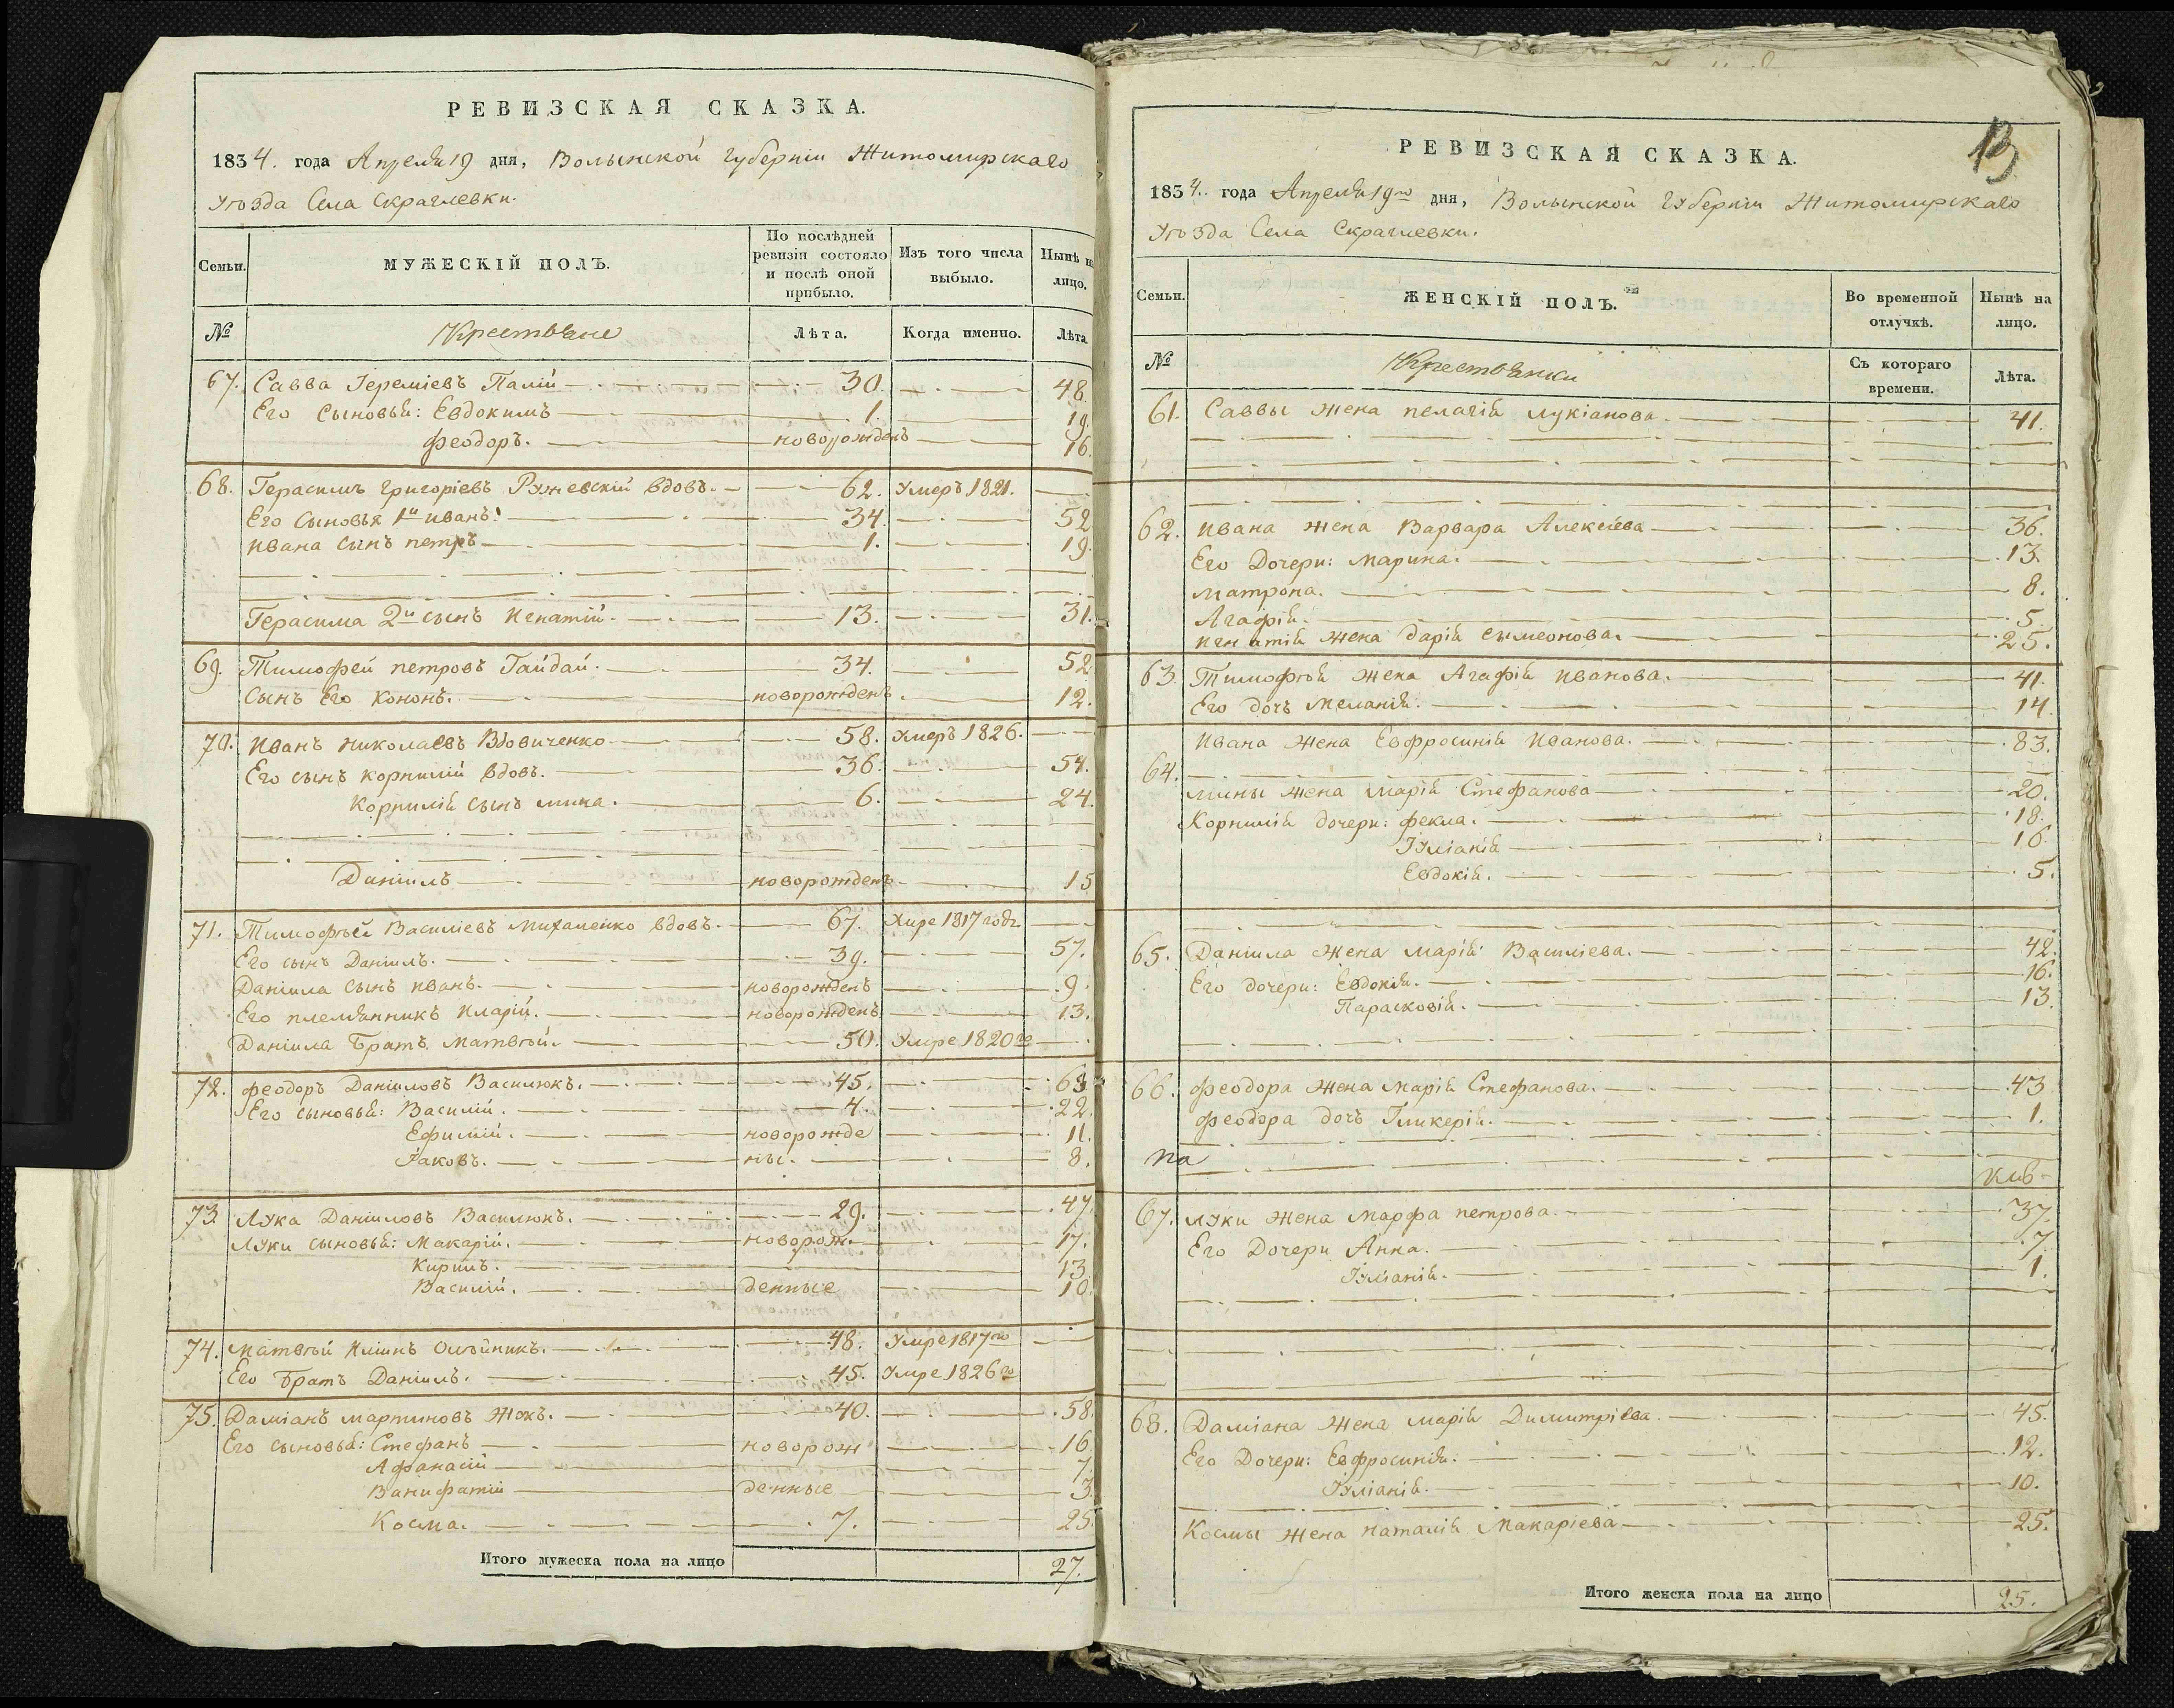 РЕВИЗСКАЯ СКАЗКА.
1834. года Апреля 19 дня, Волынской губерніи Житомирскаго
уѣзда Села Скраглевки.
Семьи. МУЖЕСКІЙ ПОЛЪ. По послѣдней ревизіи состояло и послѣ оной прибыло. Изъ того числа выбыло. Нынѣ на лицо.
№ Крестьяне Лѣта. Когда именно. Лѣта.
67. Савва Іереміевъ Палій 30. 48.
Его Сыновья: Евдокимъ 1. 19.
Феодоръ. новорожденъ 16.
68. Герасимъ Григоріевъ Ружевскій вдовъ. 62. Умеръ 1821.
Его Сыновья 1й Иванъ. 34. 52
Ивана сынъ петръ 1. 19.
Герасима 2й сынъ Игнатій. 13. 31.
69. Тимофей петровъ Гайдай. 34. 52
Сынъ Его Кононъ. новорожденъ. 12.
70. Иванъ Николаевъ Вдовиченко 58. Умеръ 1826.
Его сынъ корнилій вдовъ. 36. 54.
Корнилія сынъ мина. 6. 24.
Даніилъ новорожденъ 15
71. Тимофѣй Василіевъ Михаленко вдовъ. 67. Умре 1817 годъ
Его сынъ Даніилъ. 39. 57.
Даніила сынъ иванъ. новорожденъ 9.
Его племянникъ Иларій. новорожденъ 13.
Даніила Братъ Матвѣй. 50. Умре 1820го
72. феодоръ Даніиловъ Василюкъ. 45. 63
Его сыновья: Василій. 4. 22.
Ефимій. новорожде 11.
Іаковъ. ны. 8.
73. Лука Даніиловъ Василюкъ. 29. 47.
Луки сыновья: Макарій. новорож 17.
Кирилъ. 13
Василій. денные 10.
74. Матвѣй Иліинъ Олѣйникъ. 48. Умре 1817го
Его Братъ Даніилъ. 45. Умре 1826го
75. Даміанъ мартиновъ Жукъ. 40. 58.
Его сыновья: Стефанъ новорож 16
Афанасій 7.
Ванифатій денные 3.
Косма. 7. 25.
Итого мужеска пола на лицо 27.
13
РЕВИЗСКАЯ СКАЗКА.
1834. года Апреля 19го дня, Волынской Губерніи Житомирскаго
уѣзда Села Скраглевки.
Семьи. ЖЕНСКІЙ ПОЛЪ. Во временной отлучкѣ. Нынѣ на лицо.
№ Крестьянки Съ котораго времени. Лѣта.
61. Саввы жена пелагія лукіанова. 41.
62. Ивана жена Варвара Алексѣева 36.
Его Дочери: марина. 13.
матрона. 8.
Агафія. 5.
Игнатія жена дарія симеонова. 25.
63. Тимофѣя жена Агафія иванова. 41.
Его дочь меланія. 14.
Ивана жена Евфросинія Иванова. 83.
64.
мины жена Марія Стефанова 20.
Корнилія дочери: фекла. 18.
Іуліанія 16
Евдокія. 5.
65. Даніила жена марія Василіева. 42.
Его дочери: Евдокія. 16.
Парасковія. 13.
66. феодора жена марія Стефанова. 43
феодора дочь Гликерія. 1.
67. Луки жена марфа петрова. 37.
Его Дочери Анна. 7.
Іуліанія. 1.
68. Даміана жена марія Димитріева. 45.
Его Дочери: Евфросинія. 12.
Іуліанія. 10.
Космы жена наталія Макаріева 25.
Итого женска пола на лицо 25.